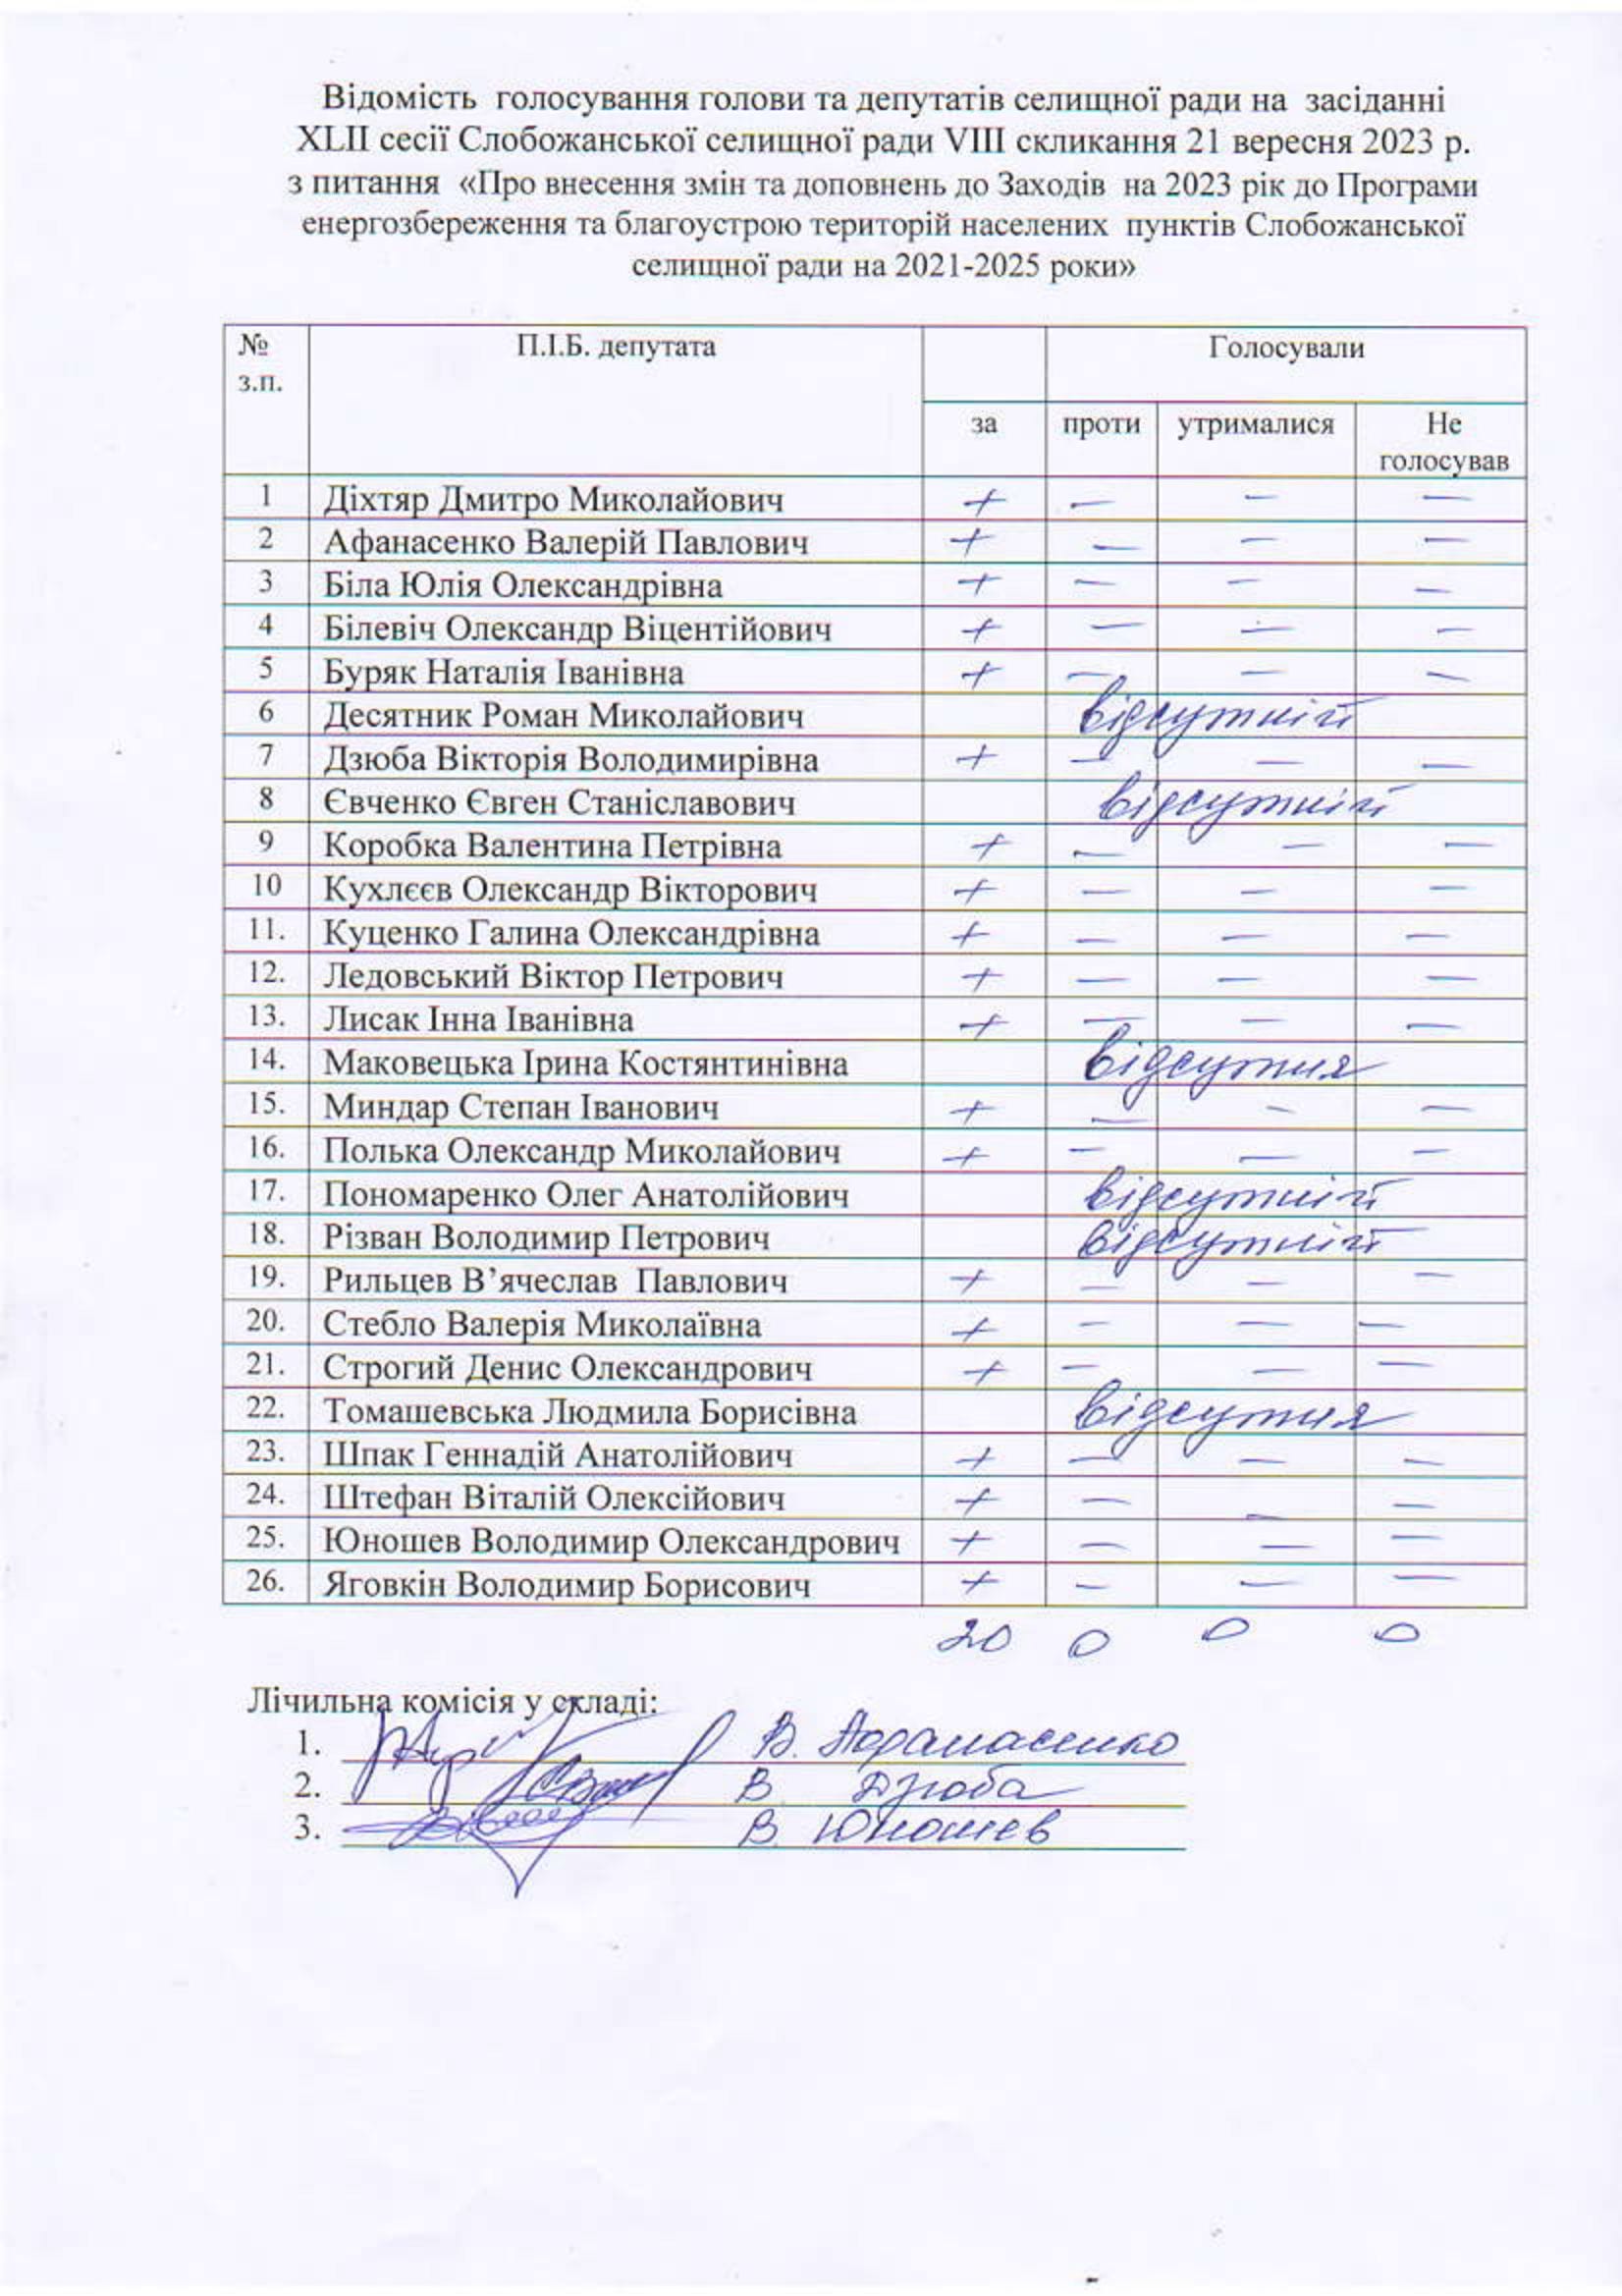 Відомість голосування голови та депутатів селищної ради на засіданні
XLII сесії Слобожанської селищної ради VIII скликання 21 вересня 2023 р.
з питання «Про внесення змін та доповнень до Заходів на 2023 рік до Програми
енергозбереження та благоустрою територій населених пунктів Слобожанської
селищної ради на 2021-2025 роки»
№ з.п. П.І.Б. депутата Голосували
за проти утрималися Не голосував
1 Діхтяр Дмитро Миколайович + — — —
2 Афанасенко Валерій Павлович + — — —
3 Біла Юлія Олександрівна + — — —
4 Білевіч Олександр Віцентійович + — — —
5 Буряк Наталія Іванівна + — — —
6 Десятник Роман Миколайович відсутній
7 Дзюба Вікторія Володимирівна + — — —
8 Євченко Євген Станіславович відсутній
9 Коробка Валентина Петрівна + — — —
10 Кухлєєв Олександр Вікторович + — — —
11. Куценко Галина Олександрівна + — — —
12. Ледовський Віктор Петрович + — — —
13. Лисак Інна Іванівна + — — —
14. Маковецька Ірина Костянтинівна відсутня
15. Миндар Степан Іванович + — — —
16. Полька Олександр Миколайович + — — —
17. Пономаренко Олег Анатолійович відсутній
18. Різван Володимир Петрович відсутній
19. Рильцев В’ячеслав Павлович + — — —
20. Стебло Валерія Миколаївна + — — —
21. Строгий Денис Олександрович + — — —
22. Томашевська Людмила Борисівна відсутня
23. Шпак Геннадій Анатолійович + — — —
24. Штефан Віталій Олексійович + — — —
25. Юношев Володимир Олександрович + — — —
26. Яговкін Володимир Борисович + — — —
20 0 0 0
Лічильна комісія у складі:
1. В. Афанасенко
2. В. Дзюба
3. В. Юношев